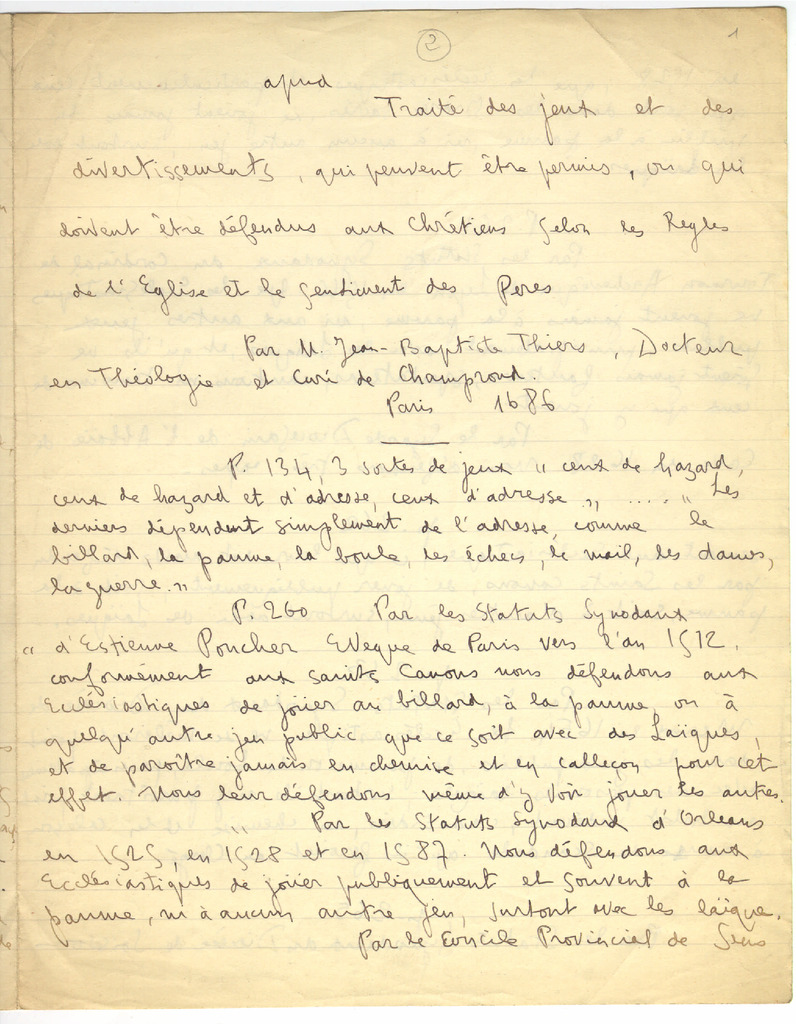 2
1
apud
Traité des jeux et des
divertissements, qui peuvent être permis, ou qui
doivent être défendus aux Chrétiens selon les Regles
de l'Eglise et le sentiment des Peres
Par M. Jean-Baptiste Thiers, Docteur
en Théologie et Curé de Champrond.
Paris 1686
P. 134, 3 sortes de jeux " ceux de hazard,
ceux de hazard et d'adresse, ceux d'adresse ,, .... " Les
derniers dépendent simplement de l'adresse, comme le
billard, la paume, la boule, les échecs, le mail, les dames,
la guerre. "
P. 260 Par les Statuts Synodaux
" d'Estienne Poncher Eveque de Paris vers l'an 1512.
conformément aux saints Canons nous défendons aux
Ecclésiastiques de joüer au billard, à la paume, ou à
quelqu'autre jeu public que ce soit avec des Laïques,
et de paroître jamais en chemise et en calleçon pour cet
effet. Nous leur défendons même d'y voir jouer les autres.
" Par les Statuts Synodaux d'Orleans
en 1525, en 1528 et en 1587. Nous défendons aux
Ecclésiastiques de joüer publiquement et souvent à la
paume, ni à aucun autre jeu, surtout avec les laïque.
Par le Concile Provincial de Sens